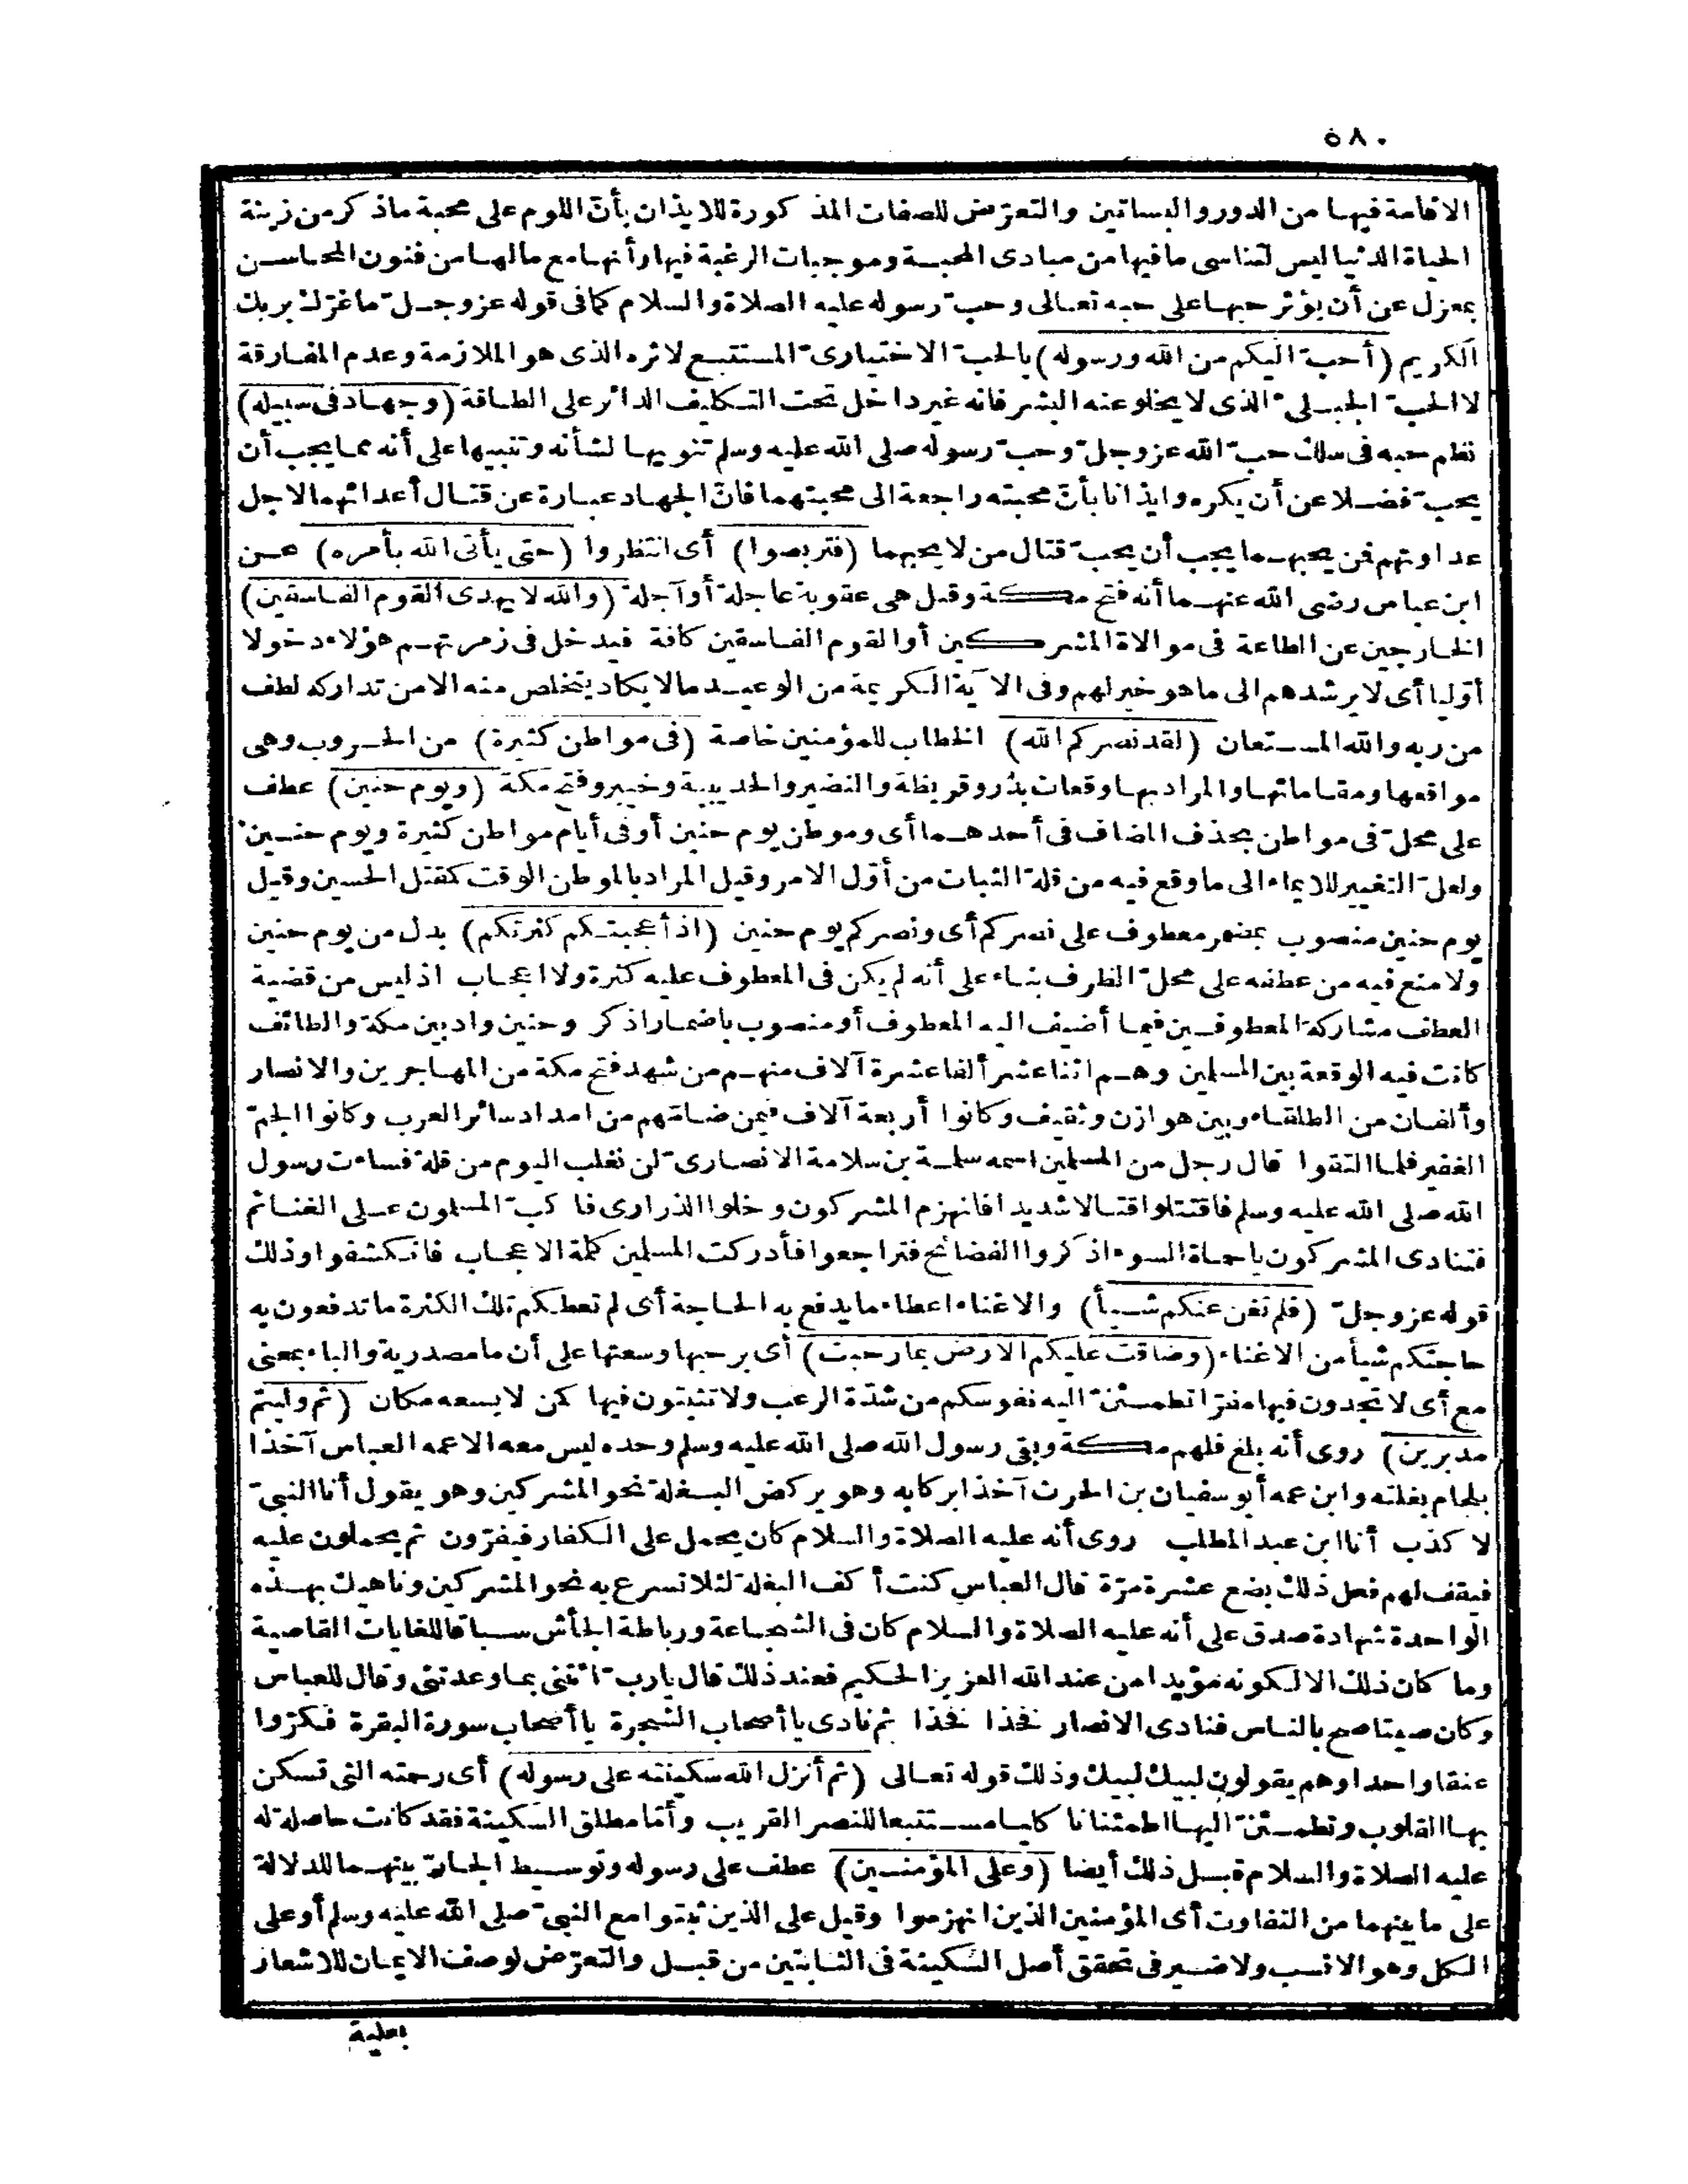 ٥٨٠
الاقامة فيها من الدور والبساتين والتعرّض للصفات المذكورة للايذان بأنّ اللوم على محبة ماذكر من زينة
الحياة الدنيا ليس لتناسى ما فيها من مبادى المحبة وموجبات الرغبة فيها وأنها مع مالها من فنون المحاسن
بمعزل عن أن يؤثر حبها على حبه تعالى وحبّ رسوله عليه الصلاة والسلام كما فى قوله عز وجلّ ما غرّك بربك
الكريم (أحبّ اليكم من الله ورسوله) بالحبّ الاختيارىّ المستتبع لاثره الذى هو الملازمة وعدم المفارقة
لا الحبّ الجبلىّ الذى لا يخلو عنه البشر فانه غير داخل تحت التكليف الدائر على الطاقة (وجهاد فى سبيله)
نظم حبه فى سلك حبّ الله عز وجلّ وحبّ رسوله صلى الله عليه وسلم تنويها لشأنه وتنبيها على أنه مما يجب أن
يحبّ فضلا عن أن يكره وايذانا بأنّ محبته راجعة الى محبتهما فانّ الجهاد عبارة عن قتال أعدائهما لاجل
عداوتهم فمن يحبهما يجب أن يحبّ قتال من لا يحبهما (فتربصوا) أى انتظروا (حتى يأتى الله بأمره) عن
ابن عباس رضى الله عنهما أنه فتح مكة وقيل هى عقوبة عاجلة أو آجلة (والله لا يهدى القوم الفاسقين)
الخارجين عن الطاعة فى موالاة المشركين أو القوم الفاسقين كافة فيدخل فى زمرتهم هؤلاء دخولا
أوّليا أى لا يرشدهم الى ما هو خير لهم وفى الآية الكريمة من الوعيد ما لا يكاد يتخلص منه الا من تداركه لطف
من ربه والله المستعان (لقد نصركم الله) الخطاب للمؤمنين خاصة (فى مواطن كثيرة) من الحروب وهى
مواقعها ومقاماتها والمراد بها وقعات بدر وقريظة والنضير والحديبية وخيبر وفتح مكة (ويوم حنين) عطف
على محلّ فى مواطن بحذف المضاف فى أحدهما أى وموطن يوم حنين أو فى أيام مواطن كثيرة ويوم حنين
ولعلّ التغيير للايماء الى ما وقع فيه من قلة الثبات من أوّل الامر وقيل المراد بالموطن الوقت كمقتل الحسين وقيل
يوم حنين منصوب بمضمر معطوف على نصركم أى ونصركم يوم حنين (اذ أعجبتكم كثرتكم) بدل من يوم حنين
ولا منع فيه من عطفه على محلّ الظرف بناء على أنه لم يكن فى المعطوف عليه كثرة ولا اعجاب اذ ليس من قضية
العطف مشاركة المعطوفين فيما أضيف اليه المعطوف أو منصوب باضمار اذكر وحنين واد بين مكة والطائف
كانت فيه الوقعة بين المسلمين وهم اثنا عشر ألفا عشرة آلاف منهم من شهد فتح مكة من المهاجرين والانصار
وألفان من الطلقاء وبين هوازن وثقيف وكانوا أربعة آلاف فيمن ضامّهم من امداد سائر العرب وكانوا الجمّ
الغفير فلما التقوا قال رجل من المسلمين اسمه سلمة بن سلامة الانصارىّ لن نغلب اليوم من قلة فساءت رسول
الله صلى الله عليه وسلم فاقتتلوا قتالا شديدا فانهزم المشركون وخلوا الذرارى فاكبّ المسلمون على الغنائم
فتنادى المشركون يا حماة السوء اذكروا الفضائح فتراجعوا فأدركت المسلمين كلمة الاعجاب فانكشفوا وذلك
قوله عز وجلّ (فلم تغن عنكم شيأ) والاغناء اعطاء ما يدفع به الحاجة أى لم تعطكم تلك الكثرة ما تدفعون به
حاجتكم شيأ من الاغناء (وضاقت عليكم الارض بما رحبت) أى برحبها وسعتها على أن ما مصدرية والباء بمعنى
مع أى لا تجدون فيها مفرّا تطمئنّ اليه نفوسكم من شدّة الرعب ولا تثبتون فيها كمن لا يسعه مكان (ثم وليتم
مدبرين) روى أنه بلغ فلهم مكة وبقى رسول الله صلى الله عليه وسلم وحده ليس معه الا عمه العباس آخذا
بلجام بغلته وابن عمه أبو سفيان بن الحرث آخذا بركابه وهو يركض البغلة نحو المشركين وهو يقول أنا النبىّ
لا كذب أنا ابن عبد المطلب روى أنه عليه الصلاة والسلام كان يحمل على الكفار فيفرّون ثم يحملون عليه
فيقف لهم فعل ذلك بضع عشرة مرّة قال العباس كنت أكف البغلة لئلا تسرع به نحو المشركين وناهيك بهذه
الواحدة شهادة صدق على أنه عليه الصلاة والسلام كان فى الشجاعة ورباطة الجأش سباقا للغايات القاصية
وما كان ذلك الا لكونه مؤيدا من عند الله العزيز الحكيم فعند ذلك قال يا ربّ ائتنى بما وعدتنى وقال للعباس
وكان صيتا صح بالناس فنادى الانصار فخذا فخذا ثم نادى يا أصحاب الشجرة يا أصحاب سورة البقرة فكرّوا
عنقا واحدا وهم يقولون لبيك لبيك وذلك قوله تعالى (ثم أنزل الله سكينته على رسوله) أى رحمته التى تسكن
بها القلوب وتطمئنّ اليها اطمئنانا كليا مستتبعا للنصر القريب وأمّا مطلق السكينة فقد كانت حاصلة له
عليه الصلاة والسلام قبل ذلك أيضا (وعلى المؤمنين) عطف على رسوله وتوسيط الجارّ بينهما للدلالة
على ما بينهما من التفاوت أى المؤمنين الذين انهزموا وقيل على الذين ثبتوا مع النبىّ صلى الله عليه وسلم أو على
الكل وهو الانسب ولا ضير فى تحقق أصل السكينة فى الثابتين من قبل والتعرّض لوصف الايمان للاشعار
بعلية